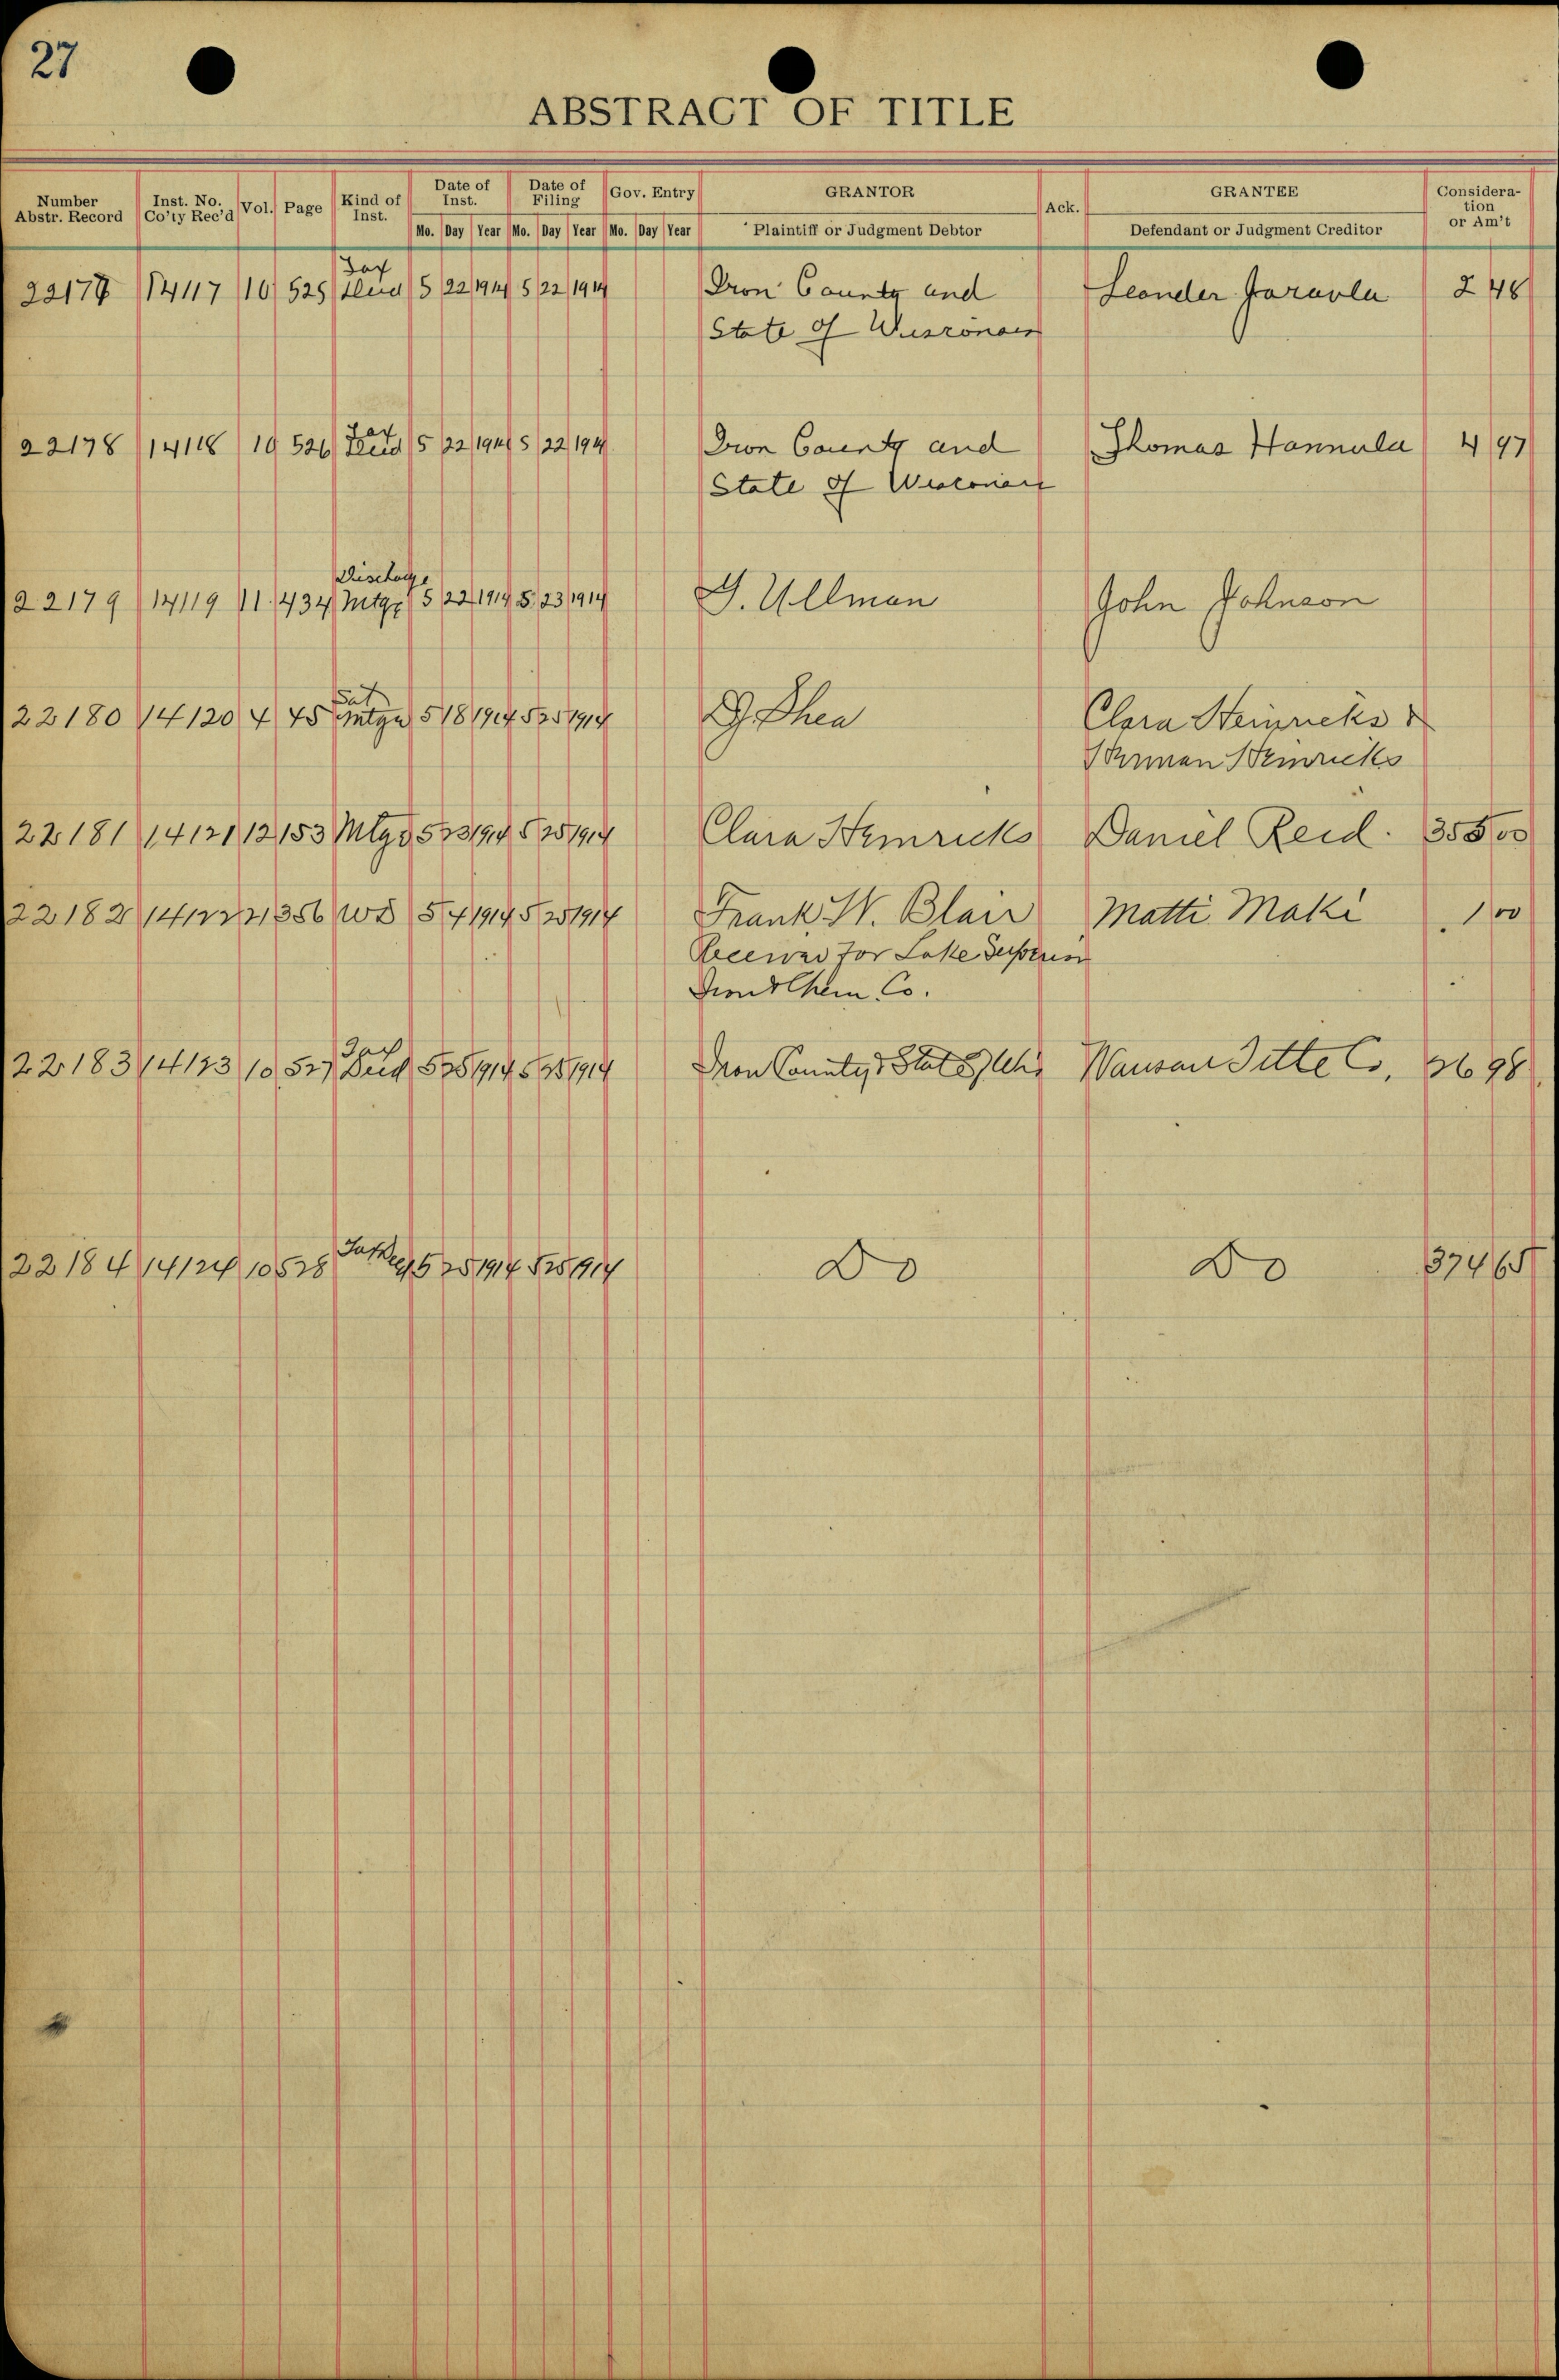 27
ABSTRACT OF TITLE
Number Abstr. Record Inst. No. Co'ty Rec'd Vol. Page Kind of Inst. Date of Inst. Date of Filing Gov. Entry GRANTOR Ack. GRANTEE Consideration or Am't
Mo. Day Year Mo. Day Year Mo. Day Year Plaintiff or Judgment Debtor Defendant or Judgment Creditor
Tax
22177 14117 10 525 Deed 5 22 1914 5 22 1914 Iron County and Leander 2 48
State of Wisconsin
Tax
22178 14118 10 526 Deed 5 22 1914 5 22 1914 Iron County and Thomas Hannula 4 97
State of Wisconsin
Discharge
22179 14119 11 434 Mtge 5 22 1914 5 23 1914 G. Ullman John Johnson
Sat
22180 14120 4 45 Mtge 5 18 1914 5 25 1914 Shea Clara Heinricks &
Herman Heinricks
22181 14121 12 153 Mtge 5 23 1914 5 25 1914 Clara Hemricks Daniel Reid. 355 00
22182 14122 21 356 WD 5 4 1914 5 25 1914 Frank W. Blair Matti Maki 1 00
Receiver for Lake Superior
Iron & Chem. Co.
Tax
22183 14123 10 527 Deed 5 25 1914 5 25 1914 Iron County & State of Wis Wausau Title Co. 36 98
22184 14124 10 528 Tax Deed 5 25 1914 5 25 1914 Do Do 374 65